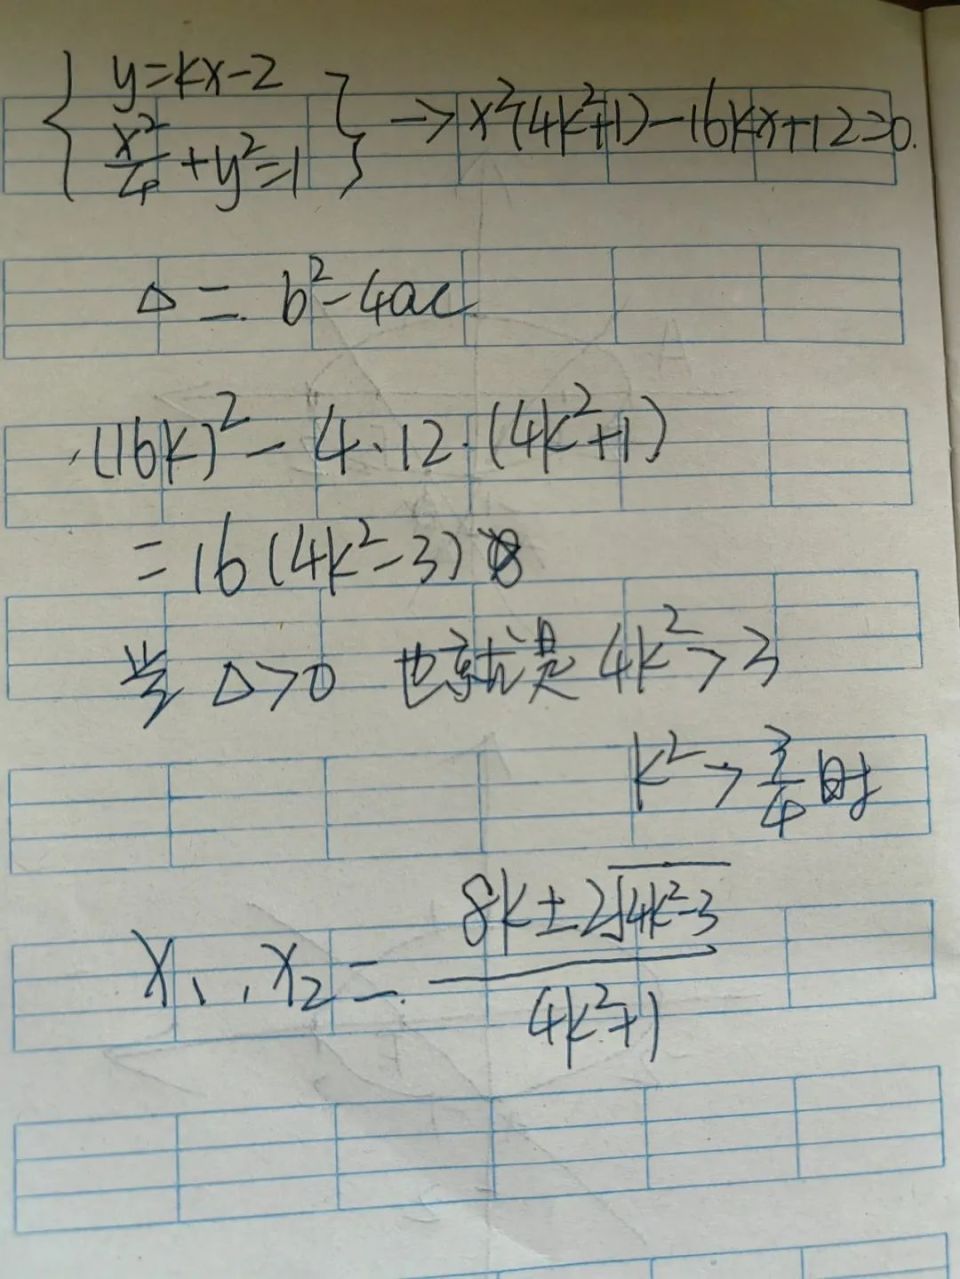 { y=kx-2
x²/4 + y²=1 } → x²(4k²+1)-16kx+12=0.
Δ = b²-4ac
(16k)² - 4·12·(4k²+1)
=16(4k²-3)
当 Δ>0 也就是 4k²>3
k²>3/4 时
x₁,x₂ = (8k±2√(4k²-3))/(4k²+1)